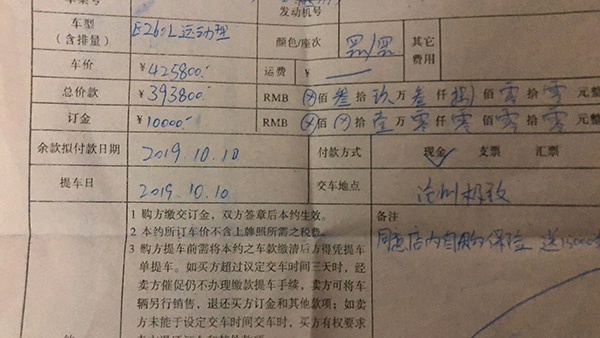 车架号 发动机号
车型
(含排量) E260L运动型 颜色/座次 黑/黑 其它
费用
车价 ¥425800.- 运费 ¥
总价款 ¥393800.- RMB ⊗佰叁拾玖万叁仟捌佰零拾零元整
订金 ¥10000.- RMB ⊗佰⊗拾壹万零仟零佰零拾零元整
余款拟付款日期 2019.10.10 付款方式 现金 支票 汇票
提车日 2019.10.10 交车地点 沧州极致
1 购方缴交订金，双方签章后本约生效。
2 本约所订车价不含上牌照所需之税费。
3 购方提车前需将本约之车款缴清后方得凭提车
单提车。如买方超过议定交车时间三天时，经
卖方催促仍不办理缴款提车手续，卖方可将车
辆另行销售，退还买方订金和其他款项；如卖
方未能于设定交车时间交车时，买方有权要求
备注
店内 保险 送15000